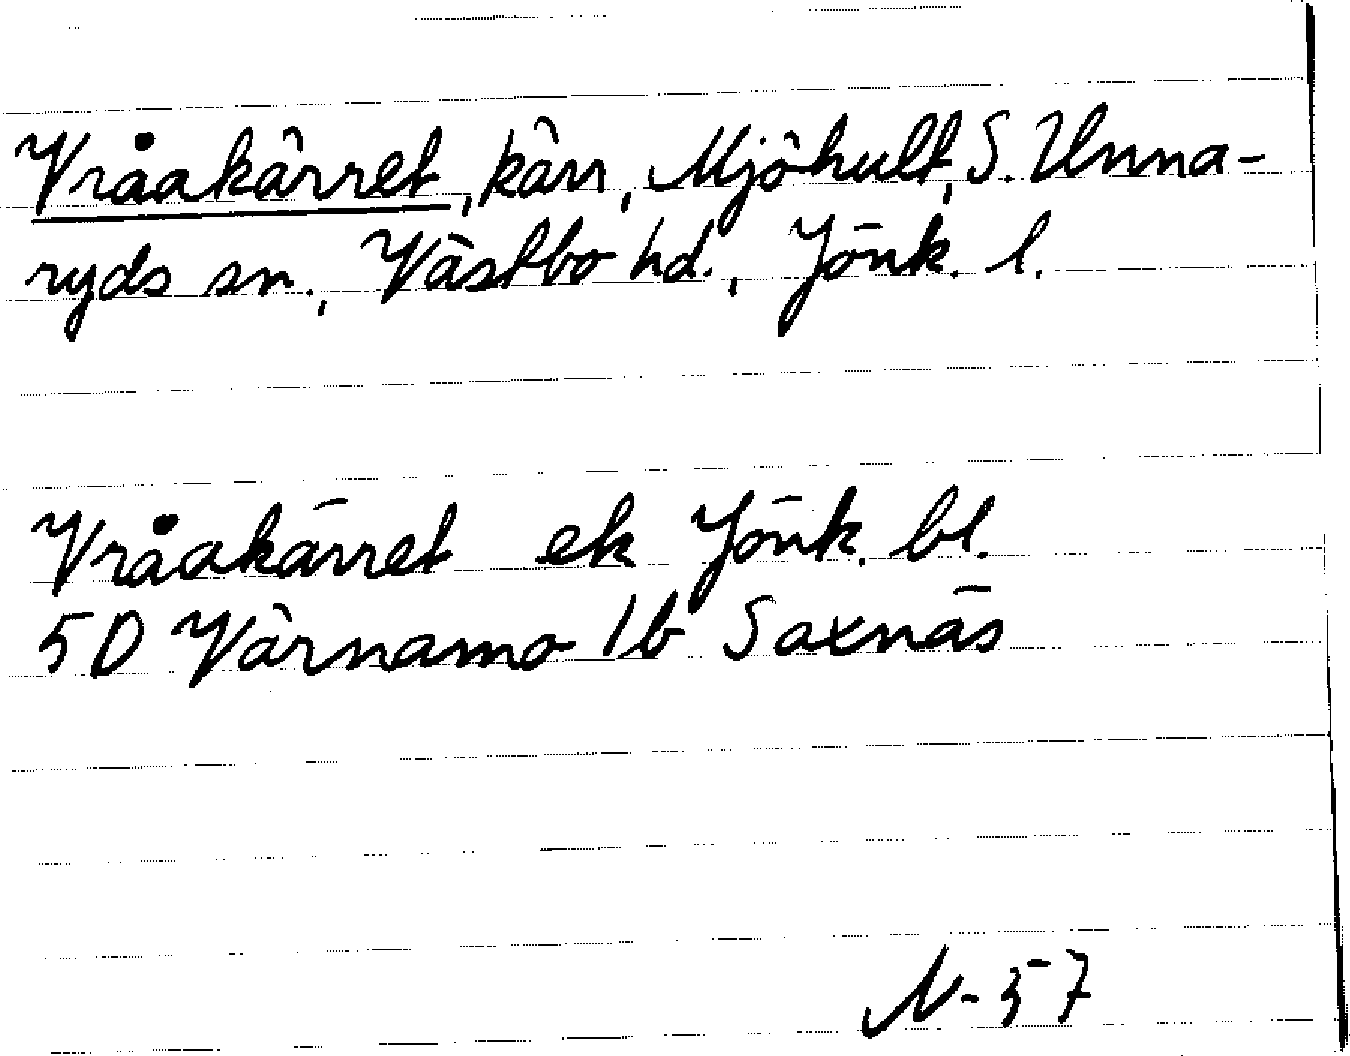 Vråakärret, kärr, Mjöhult, S. Unna-
ryds sn., Västbo hd., Jönk. l.
Vråakärret ek Jönk. bl.
5D Värnamo 1b Saxnäs
N-57